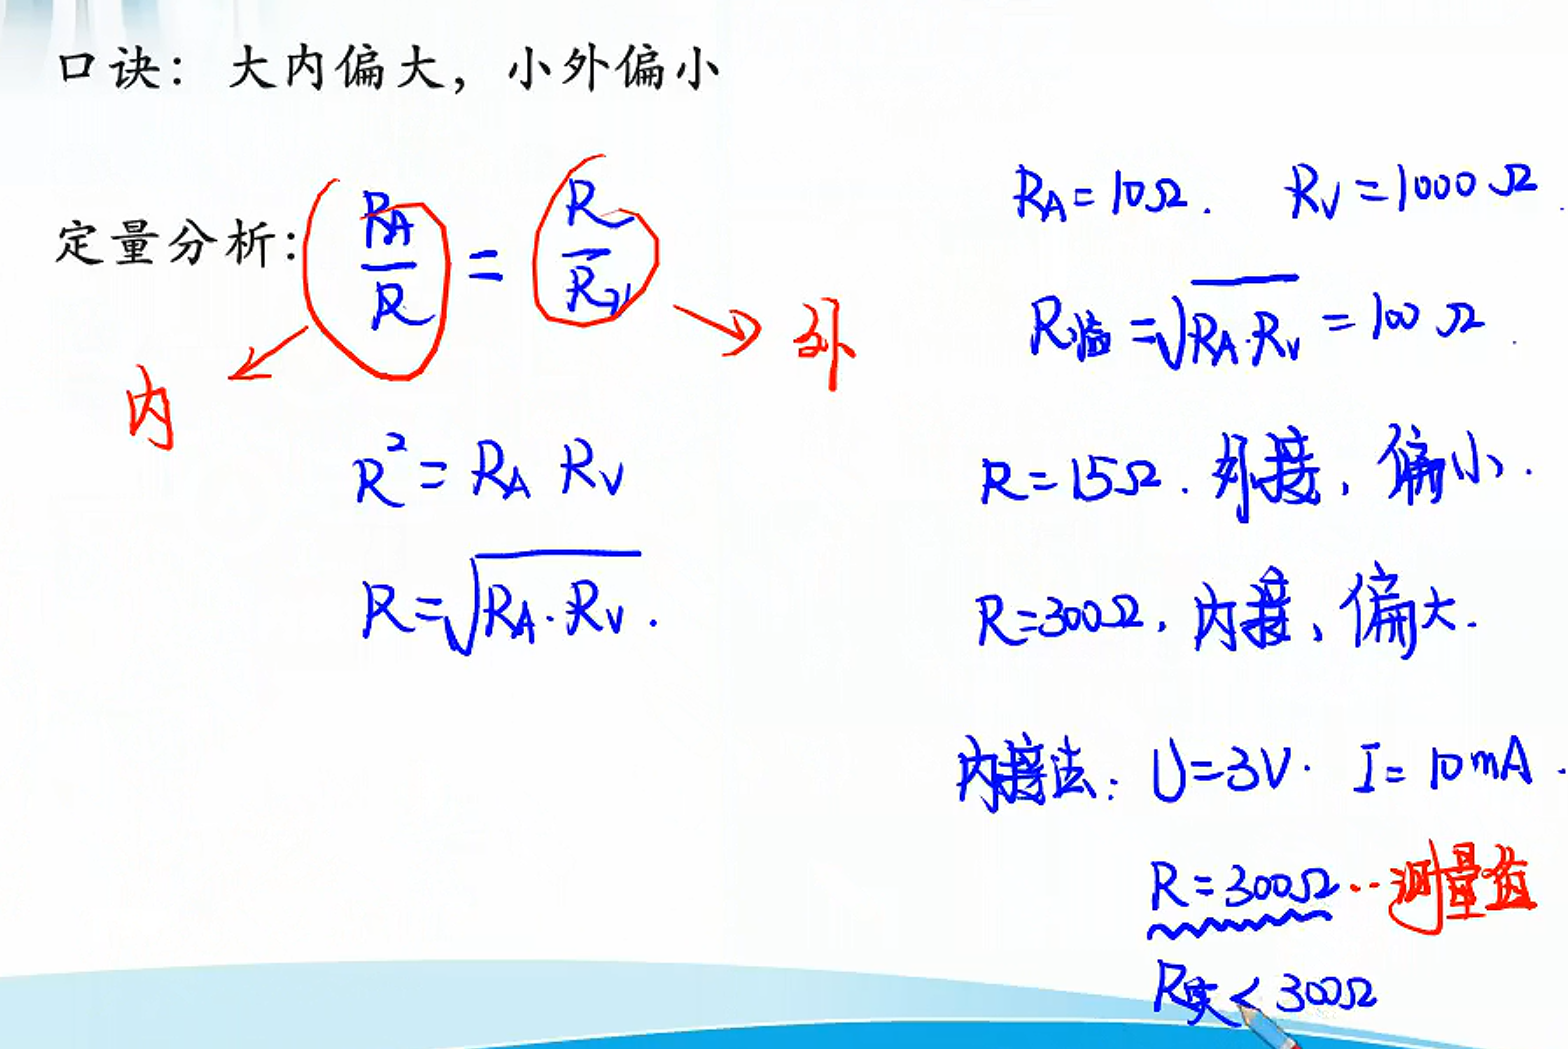 口诀：大内偏大，小外偏小
定量分析：R_A/R = R/R_V
内
外
R² = R_A R_V
R = √(R_A·R_V).
R_A = 10Ω. R_V = 1000Ω.
R临 = √(R_A·R_V) = 100Ω.
R = 15Ω. 外接、偏小.
R = 300Ω, 内接、偏大.
内接法: U = 3V. I = 10mA.
R = 300Ω ··· 测量值
R实 < 300Ω